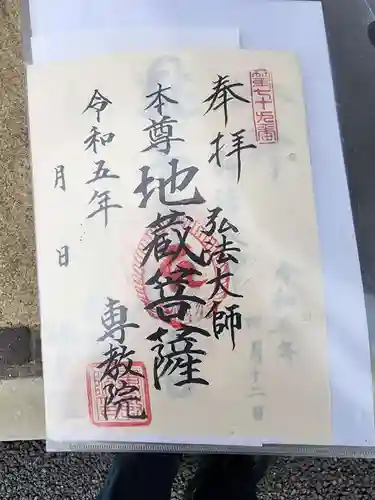 第七十九番
奉拝
弘法大師
本尊
地蔵菩薩
専教院
令和五年
月 日